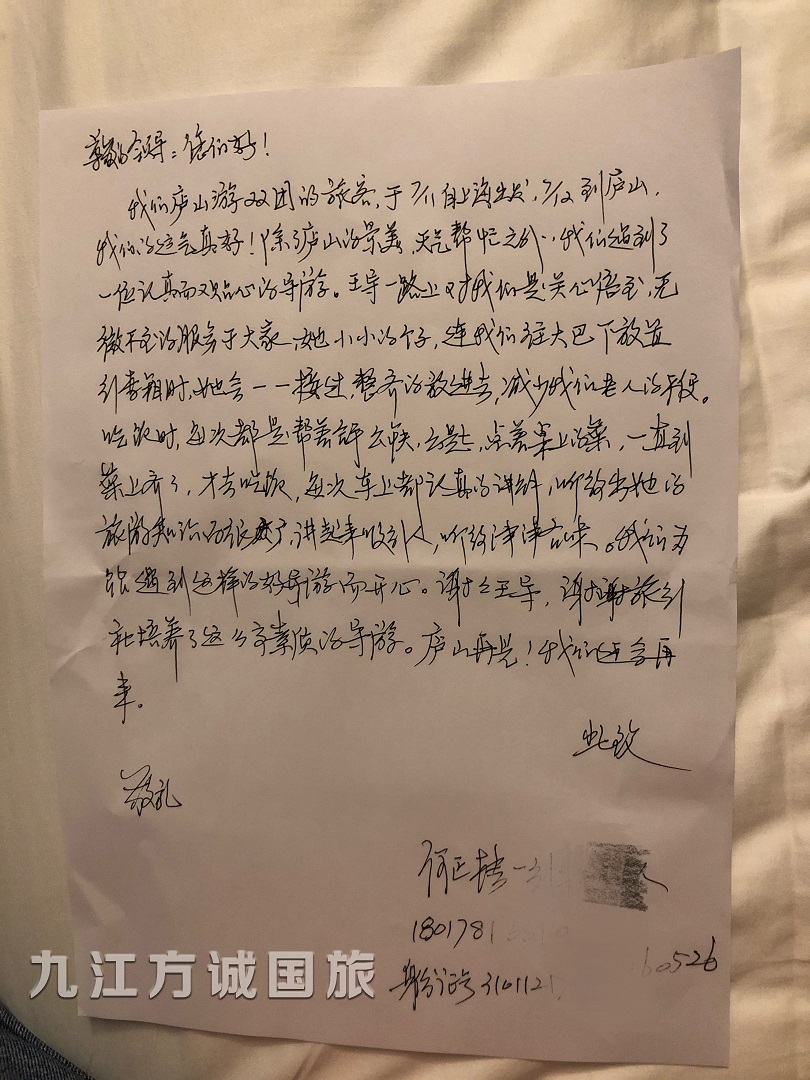 尊敬的领导：您们好！
我们庐山游双团的旅客，于7/11自上海出发，7/12到庐山，
我们的运气真好！除了庐山的景美，天气帮忙之外，我们遇到了
一位认真而又贴心的导游。王导一路上对我们是关心倍至，无
微不至的服务于大家，她小小的个子，连我们往大巴下放置
行李箱时，她会一一接过，整齐的放进去，减少我们老人的
吃饭时，每次都是帮着 点着桌上的菜，一直到
菜上齐了，才去吃饭，每次车上都认真的讲解，听得出她的
旅游知识面很广，讲起来吸引人，听得津津有味。我们为
能遇到这样的好导游而开心。谢谢王导，谢谢旅行
社培养了这么高素质的导游。庐山再见！我们还会再
来。
此致
敬礼
何正
1801781
身份证号310112
60526
九江方诚国旅